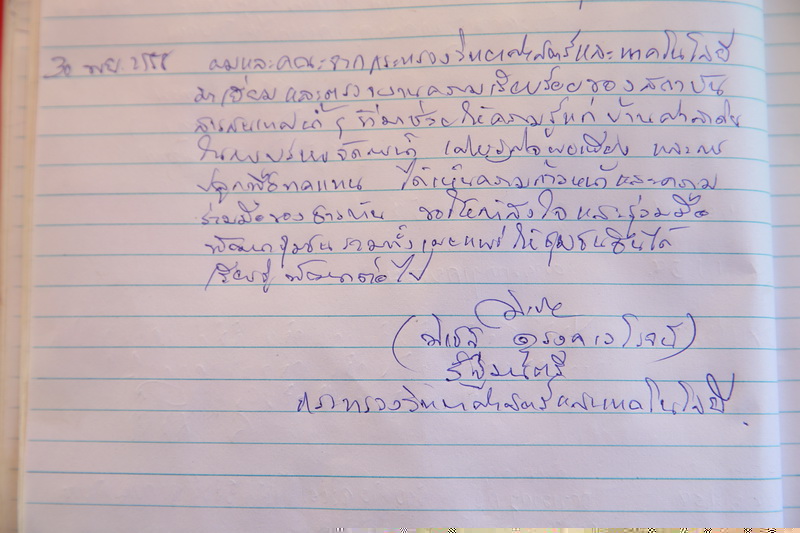 30 พ.ย. 2555 ผมและคณะจากกระทรวงวิทยาศาสตร์และเทคโนโลยี
มาเยี่ยมและตรวจงานความเรียบร้อยของสถาบัน
สารสนเทศน้ำ ๆ ที่มาช่วยให้ความรู้แก่บ้านศาลาดิน
ในการบริหารจัดการน้ำ เศรษฐกิจพอเพียง และการ
ปลูกพืชทดแทน ได้เห็นความก้าวหน้าและความ
ร่วมมือของชาวบ้าน ขอให้กำลังใจและร่วมมือ
พัฒนาชุมชน รวมทั้งเผยแพร่ให้ชุมชนอื่นได้
เรียนรู้ พัฒนาต่อไป
(
)
รัฐมนตรี
กระทรวงวิทยาศาสตร์และเทคโนโลยี